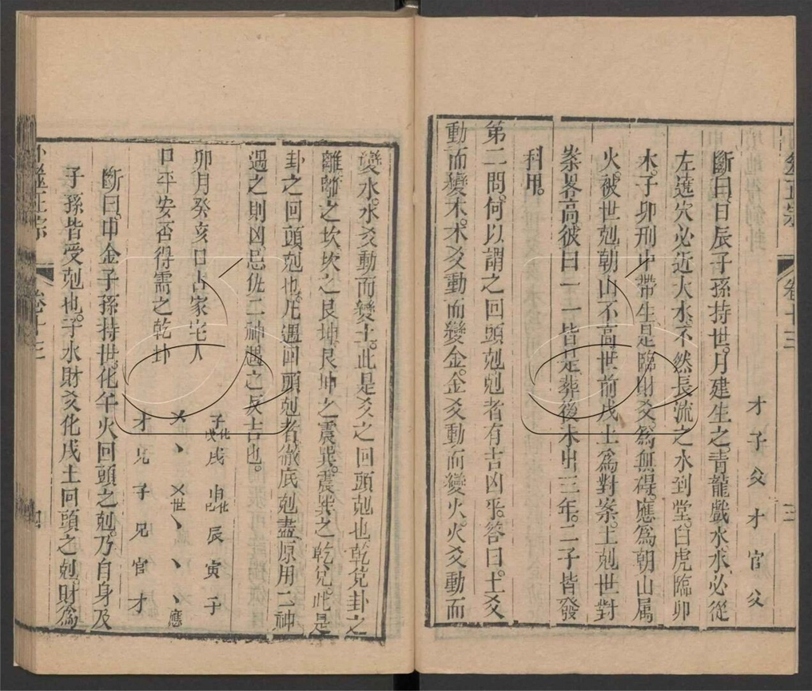 卷十三
三
才子父才官父
斷曰日辰子孫持世月建生之青龍戲水水必從
左邊穴必近大水不然長流之水到堂白虎臨卯
木子卯刑中帶生是臨財爻爲無碍應爲朝山屬
火被世剋朝山不高世前戌土爲對案土剋世對
案畧高彼曰一一皆是葬後未出三年二子皆發
科甲
第二問何以謂之回頭剋剋者有吉凶乎答曰土爻
動而變木木爻動而變金金爻動而變火火爻動而
變水水爻動而變土此是爻之回頭剋也乾兌卦之
離離之坎坎之艮坤艮坤之震巽震巽之乾兌此是
卦之回頭剋也凡遇回頭剋者徹底剋盡原用二神
遇之則凶忌仇二神遇之反吉也
卯月癸亥日占家宅人
口平安否得需之乾卦
子化戌 戌 申化巳 辰 寅 子
乂 丶 乂世 丶 丶 丶應
才兄子兄官才
斷曰申金子孫持世化午火回頭之剋乃自身及
子孫皆受剋也子水財爻化戌土回頭之剋財爲
卜筮正宗
卷十三
四